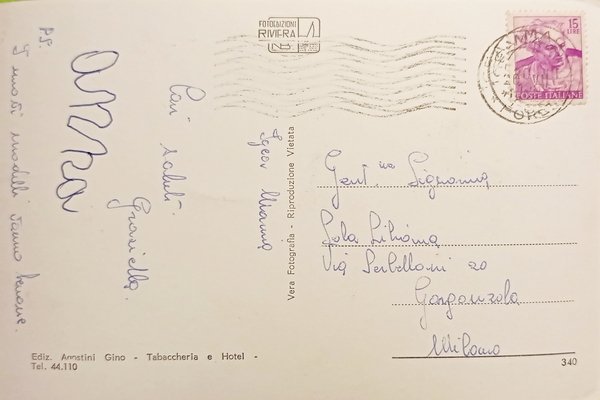 FOTOEDIZIONI
RIVIERA
15
LIRE
POSTE ITALIANE
P.S.
I nostri modelli vanno benone.
anna
Cari saluti.
Graziella.
Vera Fotografia - Riproduzione Vietata
Gent.ma Signorina
Sola Liliana
Via Serbelloni 20
Gorgonzola
Milano
Ediz. Agostini Gino - Tabaccheria e Hotel -
Tel. 44.110
340